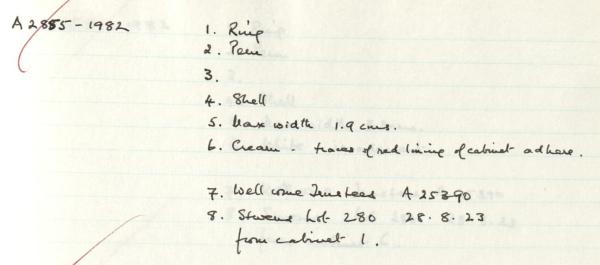 A 2855-1982
1. Ring
2. Peru
3.
4. Shell
5. Max width 1.9 cms.
6. Cream. traces of red lining of cabinet adhere.
7. Wellcome Trustees A 25390
8. Stevens Lot 280 28.8.23
from cabinet 1.